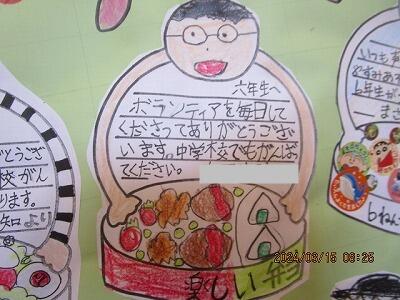 六年生へ
ボランティアを毎日して
くださってありがとうござい
います。中学校でもがんば
てください。
楽しい弁当
どうござ
校がん
ります。
知より
いつも
6年生が
ま
6ねん
2024/03/15 08:25